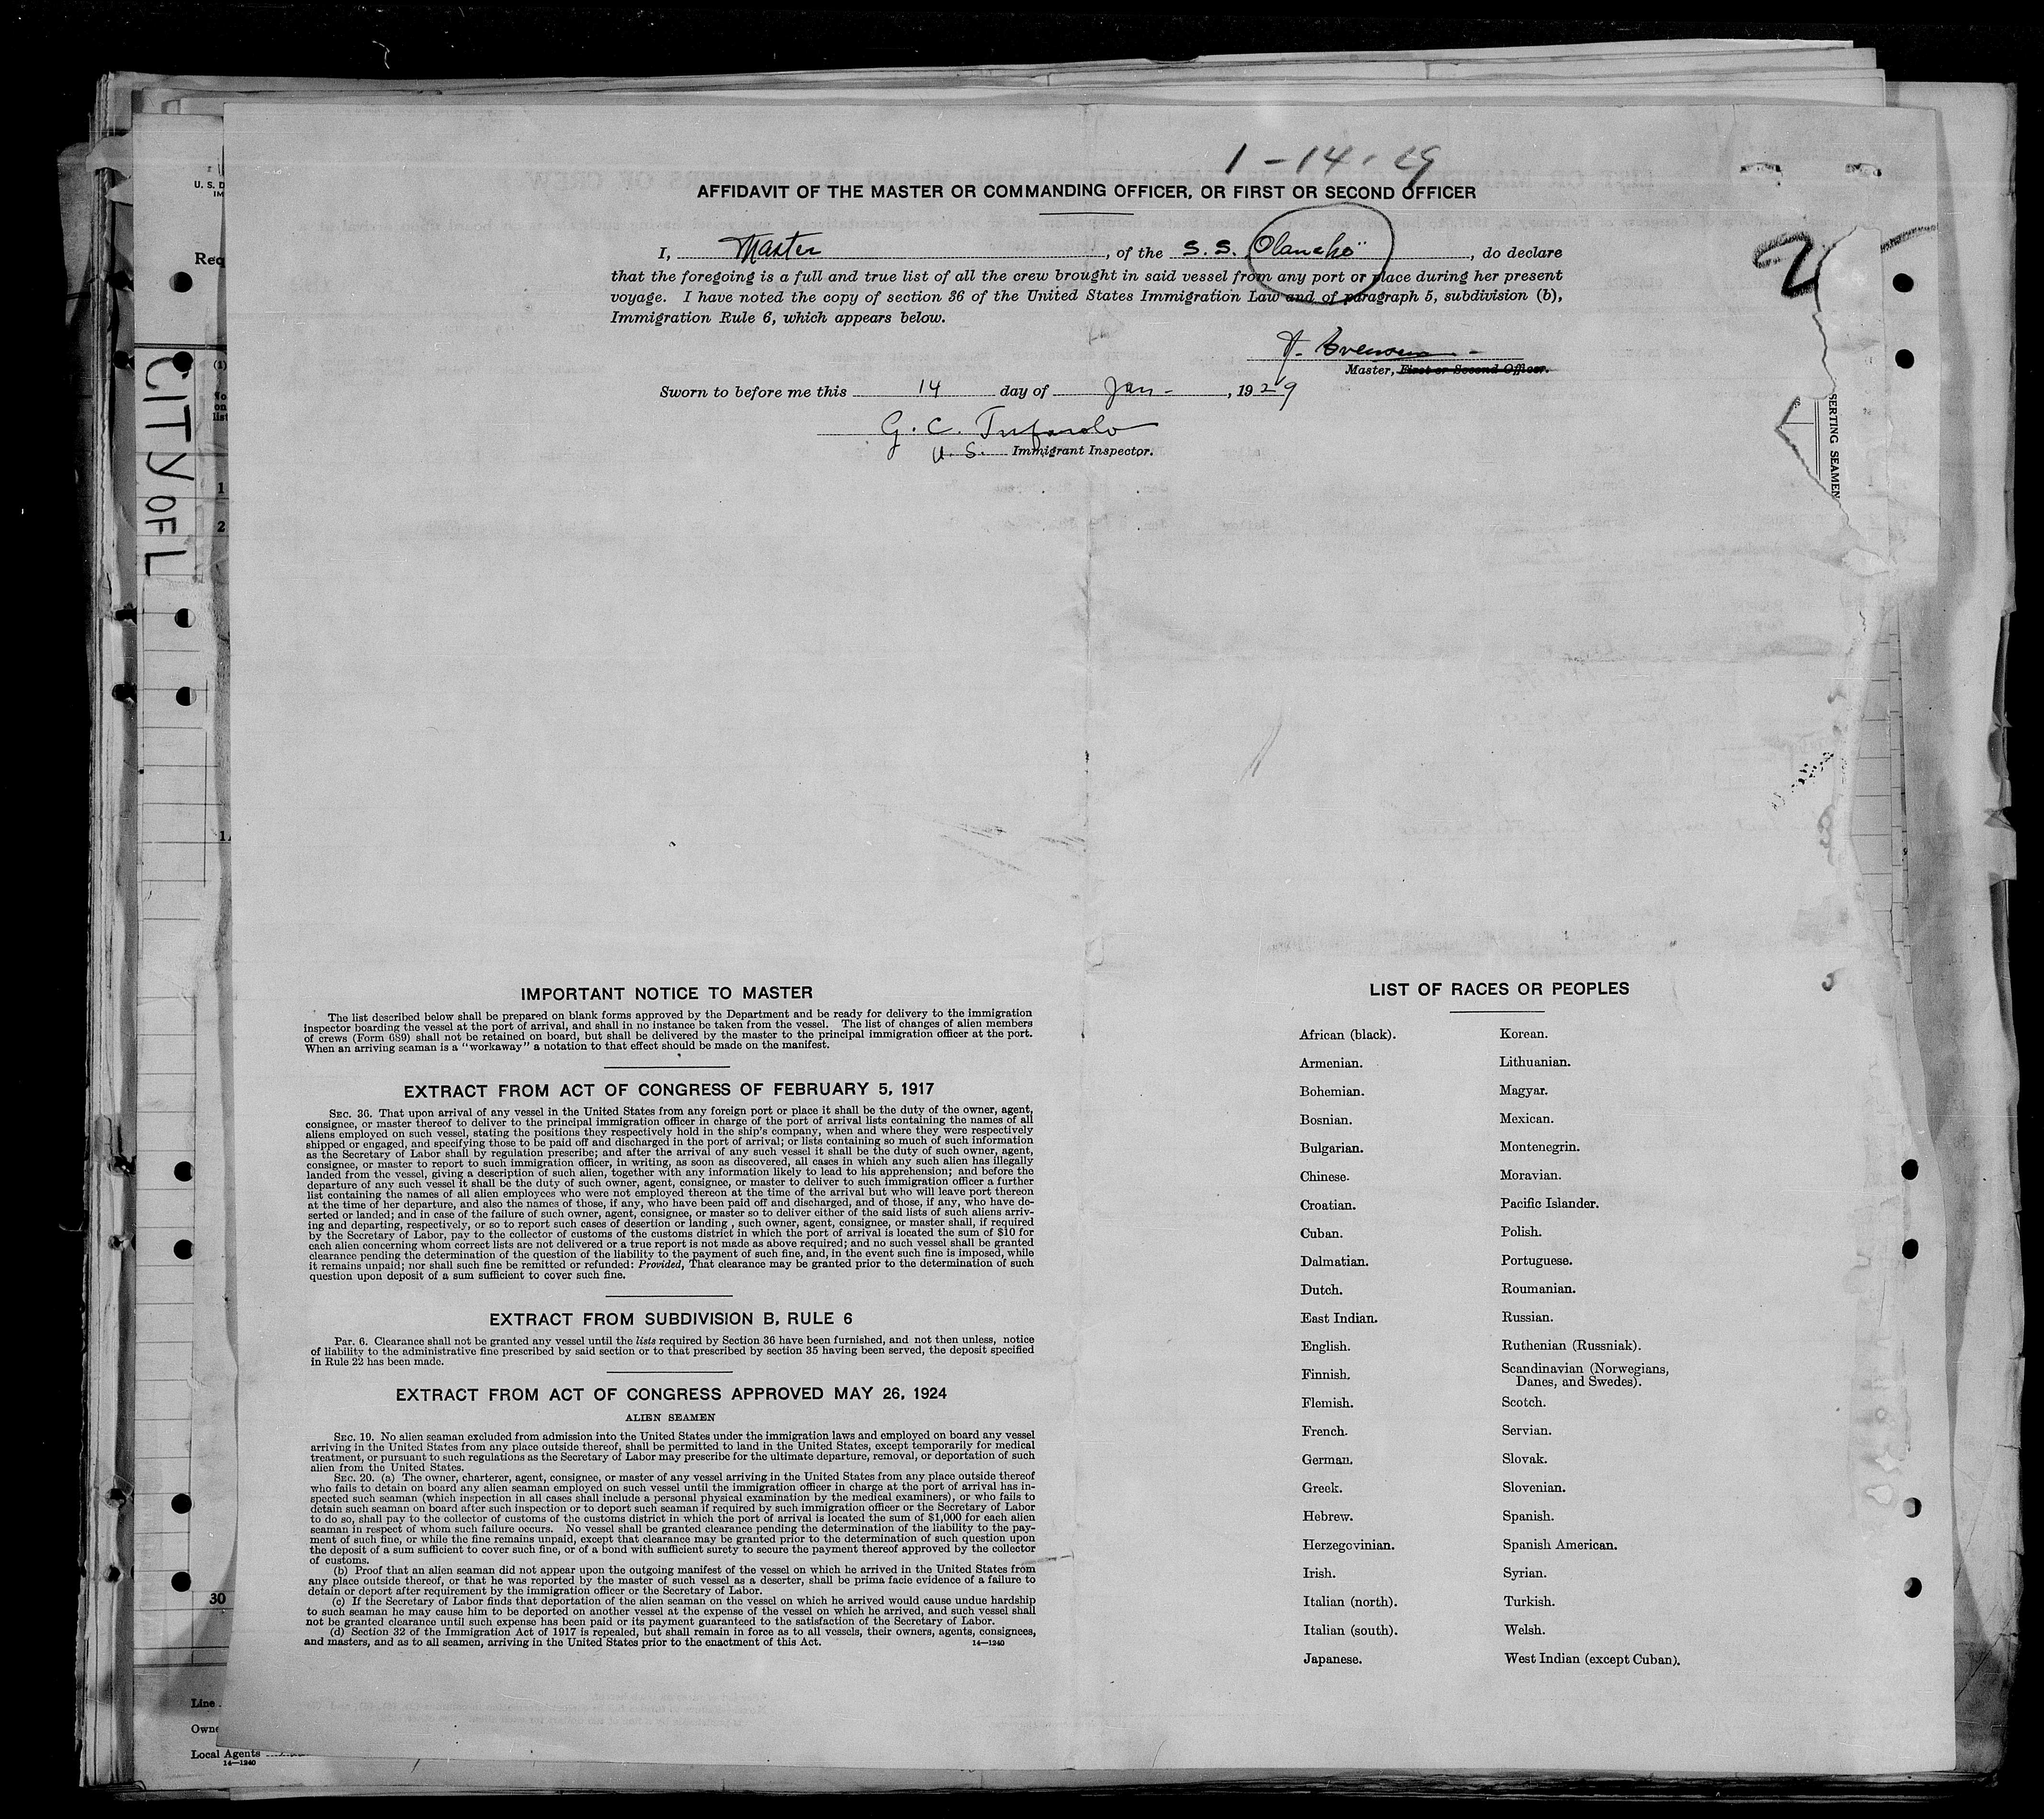 1-14-29
AFFIDAVIT OF THE MASTER OR COMMANDING OFFICER, OR FIRST OR SECOND OFFICER
I, Master, of the S. S. Olancho", do declare
that the foregoing is a full and true list of all the crew brought in said vessel from any port or place during her present
voyage. I have noted the copy of section 36 of the United States Immigration Law and of paragraph 5, subdivision (b),
Immigration Rule 6, which appears below.
Master, First or Second Officer.
Sworn to before me this 14 day of Jan-, 1929
G. C.
U. S. Immigrant Inspector.
2
SERTING SEAMEN
U. S. D
IM
Req
CITY OF L
(1)
No
on
list
1
2
30
Line
Owne
Local Agents
14—1240
IMPORTANT NOTICE TO MASTER
The list described below shall be prepared on blank forms approved by the Department and be ready for delivery to the immigration
inspector boarding the vessel at the port of arrival, and shall in no instance be taken from the vessel. The list of changes of alien members
of crews (Form 689) shall not be retained on board, but shall be delivered by the master to the principal immigration officer at the port.
When an arriving seaman is a "workaway" a notation to that effect should be made on the manifest.
EXTRACT FROM ACT OF CONGRESS OF FEBRUARY 5, 1917
SEC. 36. That upon arrival of any vessel in the United States from any foreign port or place it shall be the duty of the owner, agent,
consignee, or master thereof to deliver to the principal immigration officer in charge of the port of arrival lists containing the names of all
aliens employed on such vessel, stating the positions they respectively hold in the ship's company, when and where they were respectively
shipped or engaged, and specifying those to be paid off and discharged in the port of arrival; or lists containing so much of such information
as the Secretary of Labor shall by regulation prescribe; and after the arrival of any such vessel it shall be the duty of such owner, agent,
consignee, or master to report to such immigration officer, in writing, as soon as discovered, all cases in which any such alien has illegally
landed from the vessel, giving a description of such alien, together with any information likely to lead to his apprehension; and before the
departure of any such vessel it shall be the duty of such owner, agent, consignee, or master to deliver to such immigration officer a further
list containing the names of all alien employees who were not employed thereon at the time of the arrival but who will leave port thereon
at the time of her departure, and also the names of those, if any, who have been paid off and discharged, and of those, if any, who have de-
serted or landed; and in case of the failure of such owner, agent, consignee, or master so to deliver either of the said lists of such aliens arriv-
ing and departing, respectively, or so to report such cases of desertion or landing , such owner, agent, consignee, or master shall, if required
by the Secretary of Labor, pay to the collector of customs of the customs district in which the port of arrival is located the sum of $10 for
each alien concerning whom correct lists are not delivered or a true report is not made as above required; and no such vessel shall be granted
clearance pending the determination of the question of the liability to the payment of such fine, and, in the event such fine is imposed, while
it remains unpaid; nor shall such fine be remitted or refunded: Provided, That clearance may be granted prior to the determination of such
question upon deposit of a sum sufficient to cover such fine.
EXTRACT FROM SUBDIVISION B, RULE 6
Par. 6. Clearance shall not be granted any vessel until the lists required by Section 36 have been furnished, and not then unless, notice
of liability to the administrative fine prescribed by said section or to that prescribed by section 35 having been served, the deposit specified
in Rule 22 has been made.
EXTRACT FROM ACT OF CONGRESS APPROVED MAY 26, 1924
ALIEN SEAMEN
SEC. 19. No alien seaman excluded from admission into the United States under the immigration laws and employed on board any vessel
arriving in the United States from any place outside thereof, shall be permitted to land in the United States, except temporarily for medical
treatment, or pursuant to such regulations as the Secretary of Labor may prescribe for the ultimate departure, removal, or deportation of such
alien from the United States.
SEC. 20. (a) The owner, charterer, agent, consignee, or master of any vessel arriving in the United States from any place outside thereof
who fails to detain on board any alien seaman employed on such vessel until the immigration officer in charge at the port of arrival has in-
spected such seaman (which inspection in all cases shall include a personal physical examination by the medical examiners), or who fails to
detain such seaman on board after such inspection or to deport such seaman if required by such immigration officer or the Secretary of Labor
to do so, shall pay to the collector of customs of the customs district in which the port of arrival is located the sum of $1,000 for each alien
seaman in respect of whom such failure occurs. No vessel shall be granted clearance pending the determination of the liability to the pay-
ment of such fine, or while the fine remains unpaid, except that clearance may be granted prior to the determination of such question upon
the deposit of a sum sufficient to cover such fine, or of a bond with sufficient surety to secure the payment thereof approved by the collector
of customs.
(b) Proof that an alien seaman did not appear upon the outgoing manifest of the vessel on which he arrived in the United States from
any place outside thereof, or that he was reported by the master of such vessel as a deserter, shall be prima facie evidence of a failure to
detain or deport after requirement by the immigration officer or the Secretary of Labor.
(c) If the Secretary of Labor finds that deportation of the alien seaman on the vessel on which he arrived would cause undue hardship
to such seaman he may cause him to be deported on another vessel at the expense of the vessel on which he arrived, and such vessel shall
not be granted clearance until such expense has been paid or its payment guaranteed to the satisfaction of the Secretary of Labor.
(d) Section 32 of the Immigration Act of 1917 is repealed, but shall remain in force as to all vessels, their owners, agents, consignees,
and masters, and as to all seamen, arriving in the United States prior to the enactment of this Act.
14—1240
LIST OF RACES OR PEOPLES
African (black). Korean.
Armenian. Lithuanian.
Bohemian. Magyar.
Bosnian. Mexican.
Bulgarian. Montenegrin.
Chinese. Moravian.
Croatian. Pacific Islander.
Cuban. Polish.
Dalmatian. Portuguese.
Dutch. Roumanian.
East Indian. Russian.
English. Ruthenian (Russniak).
Finnish. Scandinavian (Norwegians,
Danes, and Swedes).
Flemish. Scotch.
French. Servian.
German. Slovak.
Greek. Slovenian.
Hebrew. Spanish.
Herzegovinian. Spanish American.
Irish. Syrian.
Italian (north). Turkish.
Italian (south). Welsh.
Japanese. West Indian (except Cuban).